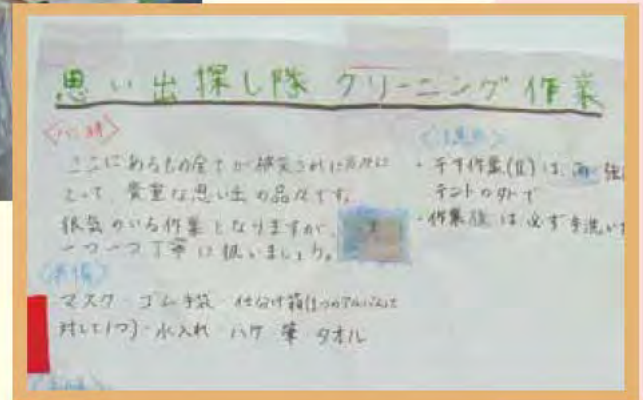 思い出探し隊 クリーニング作業
〈心構〉
ここにあるもの全てが被災された方々に
とって、貴重な思い出の品々です。
根気のいる作業となりますが、
一つ一つ丁寧に扱いましょう。
〈準備〉
マスク・ゴム手袋・仕分け箱(1つのアルバムに
対して1つ)・水入れ ハケ 筆 タオル
・干す作業(II)は、雨・強
テントの外で
・作業後は必ず手洗い